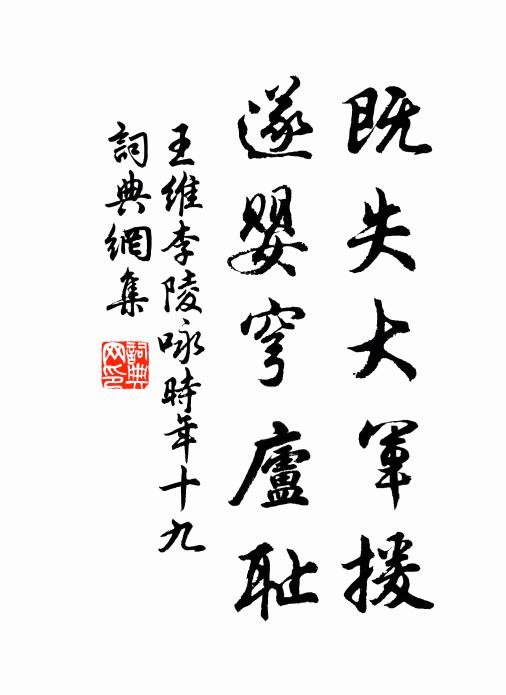 既失大軍援
遂嬰穹廬耻
王維李陵咏時年十九
詞典網集
詞典
网印